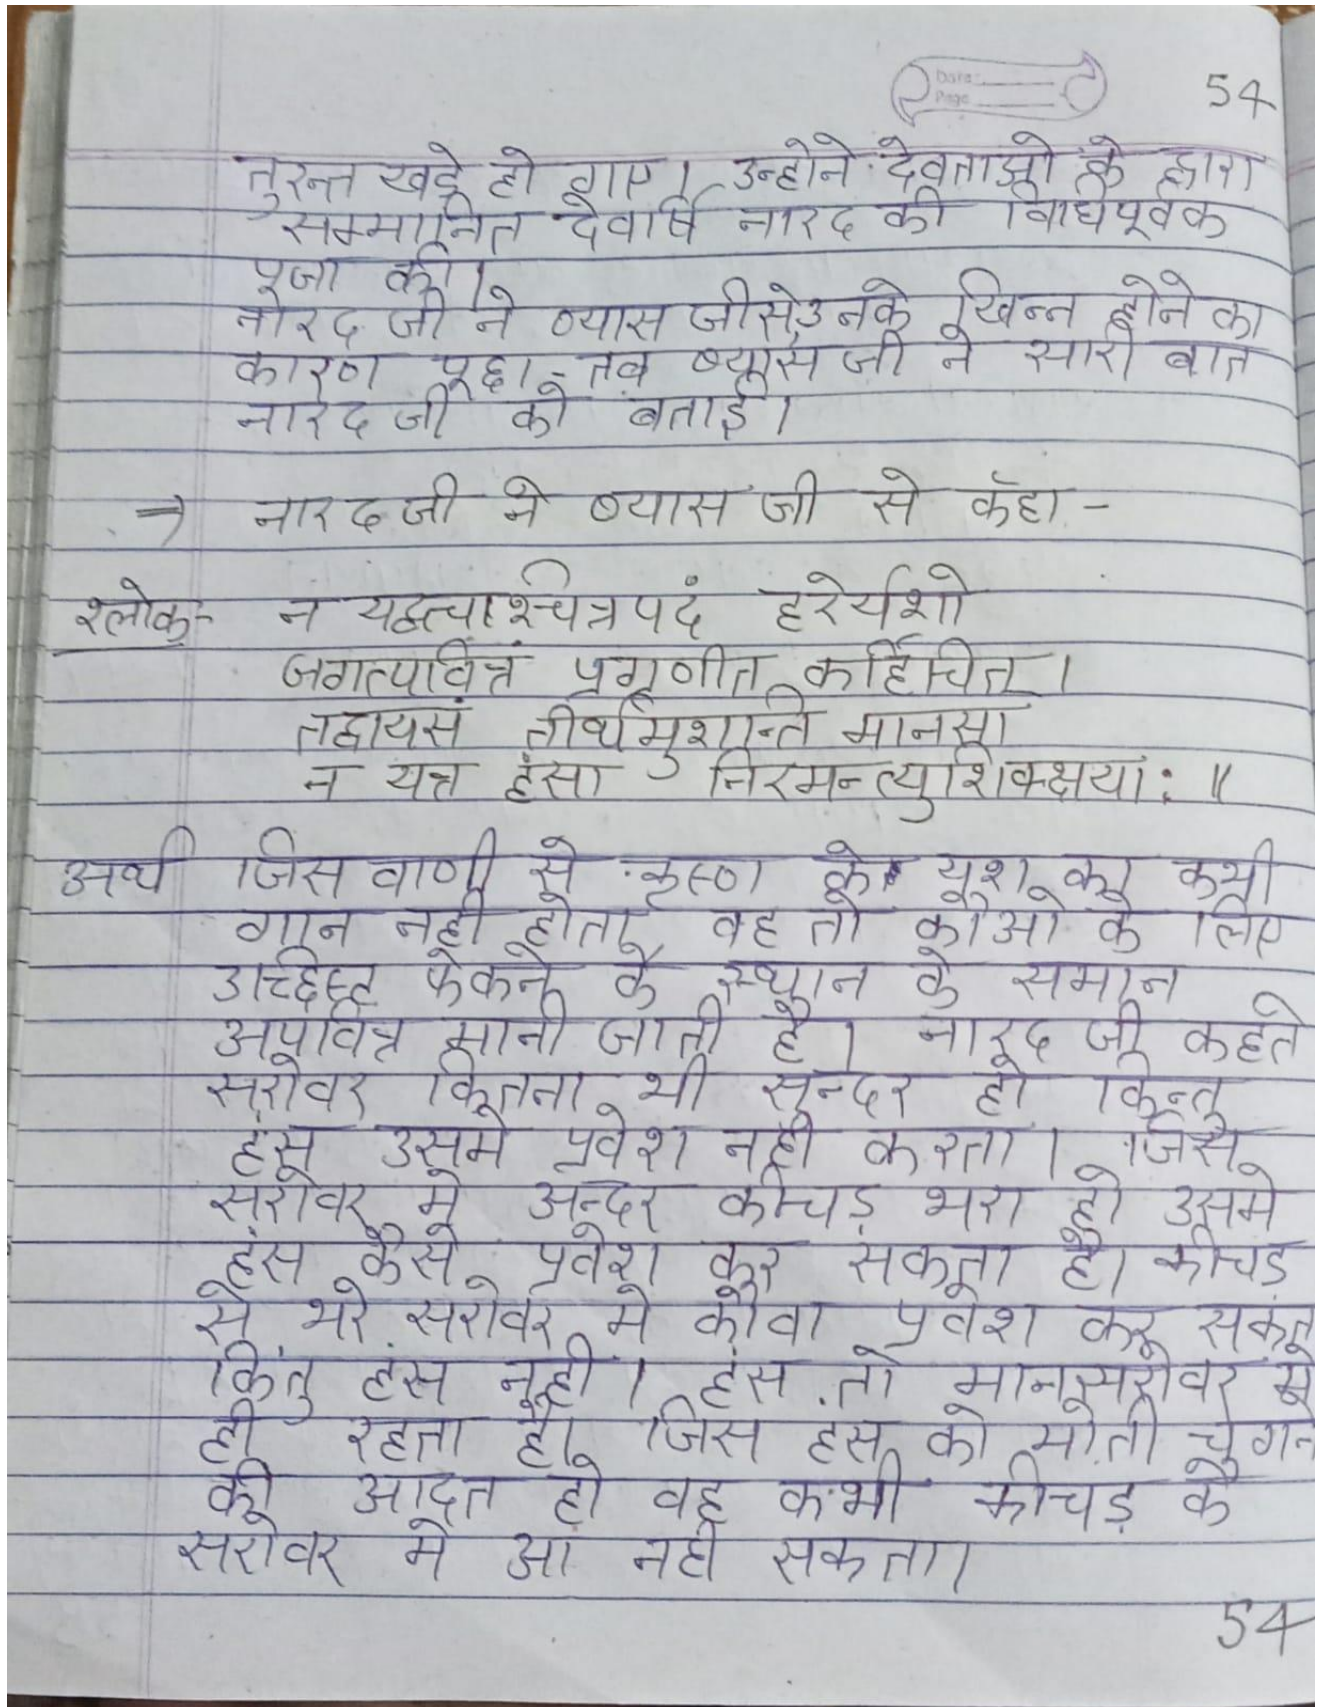 Date:
Page
54
तुरन्त खड़े हो गए। उन्होने देवताओ के द्वारा
सम्मानित देवर्षि नारद की विधिपूर्वक
पूजा की।
नारद जी ने व्यास जी से उनके खिन्न होने का
कारण पूछा - तब व्यास जी ने सारी बात
नारद जी को बताई।
⇒ नारद जी ने व्यास जी से कहा -
श्लोक:- न यद्वचाश्चित्रपदं हरेर्यशो
जगत्पवित्रं प्रगृणीत कर्हिचित्।
तद्वायसं तीर्थमुशन्ति मानसा
न यत्र हंसा निरमन्त्युशिक्क्षयाः॥
अर्थ जिस वाणी से कृष्ण के यश का कभी
गान नही होता, वह तो कौओ के लिए
उच्छिष्ट फेकने के स्थान के समान
अपवित्र मानी जाती है। नारद जी कहते
सरोवर कितना भी सुन्दर हो किन्तु
हंस उसमे प्रवेश नही करता। जिस
सरोवर मे अन्दर कीचड़ भरा हो उसमे
हंस कैसे प्रवेश कर सकता है। कीचड़
से भरे सरोवर मे कौवा प्रवेश कर सकता
किंतु हंस नही। हंस तो मानसरोवर मे
ही रहता है। जिस हंस को मोती चुगने
की आदत हो वह कभी कीचड़ के
सरोवर मे आ नही सकता।
54